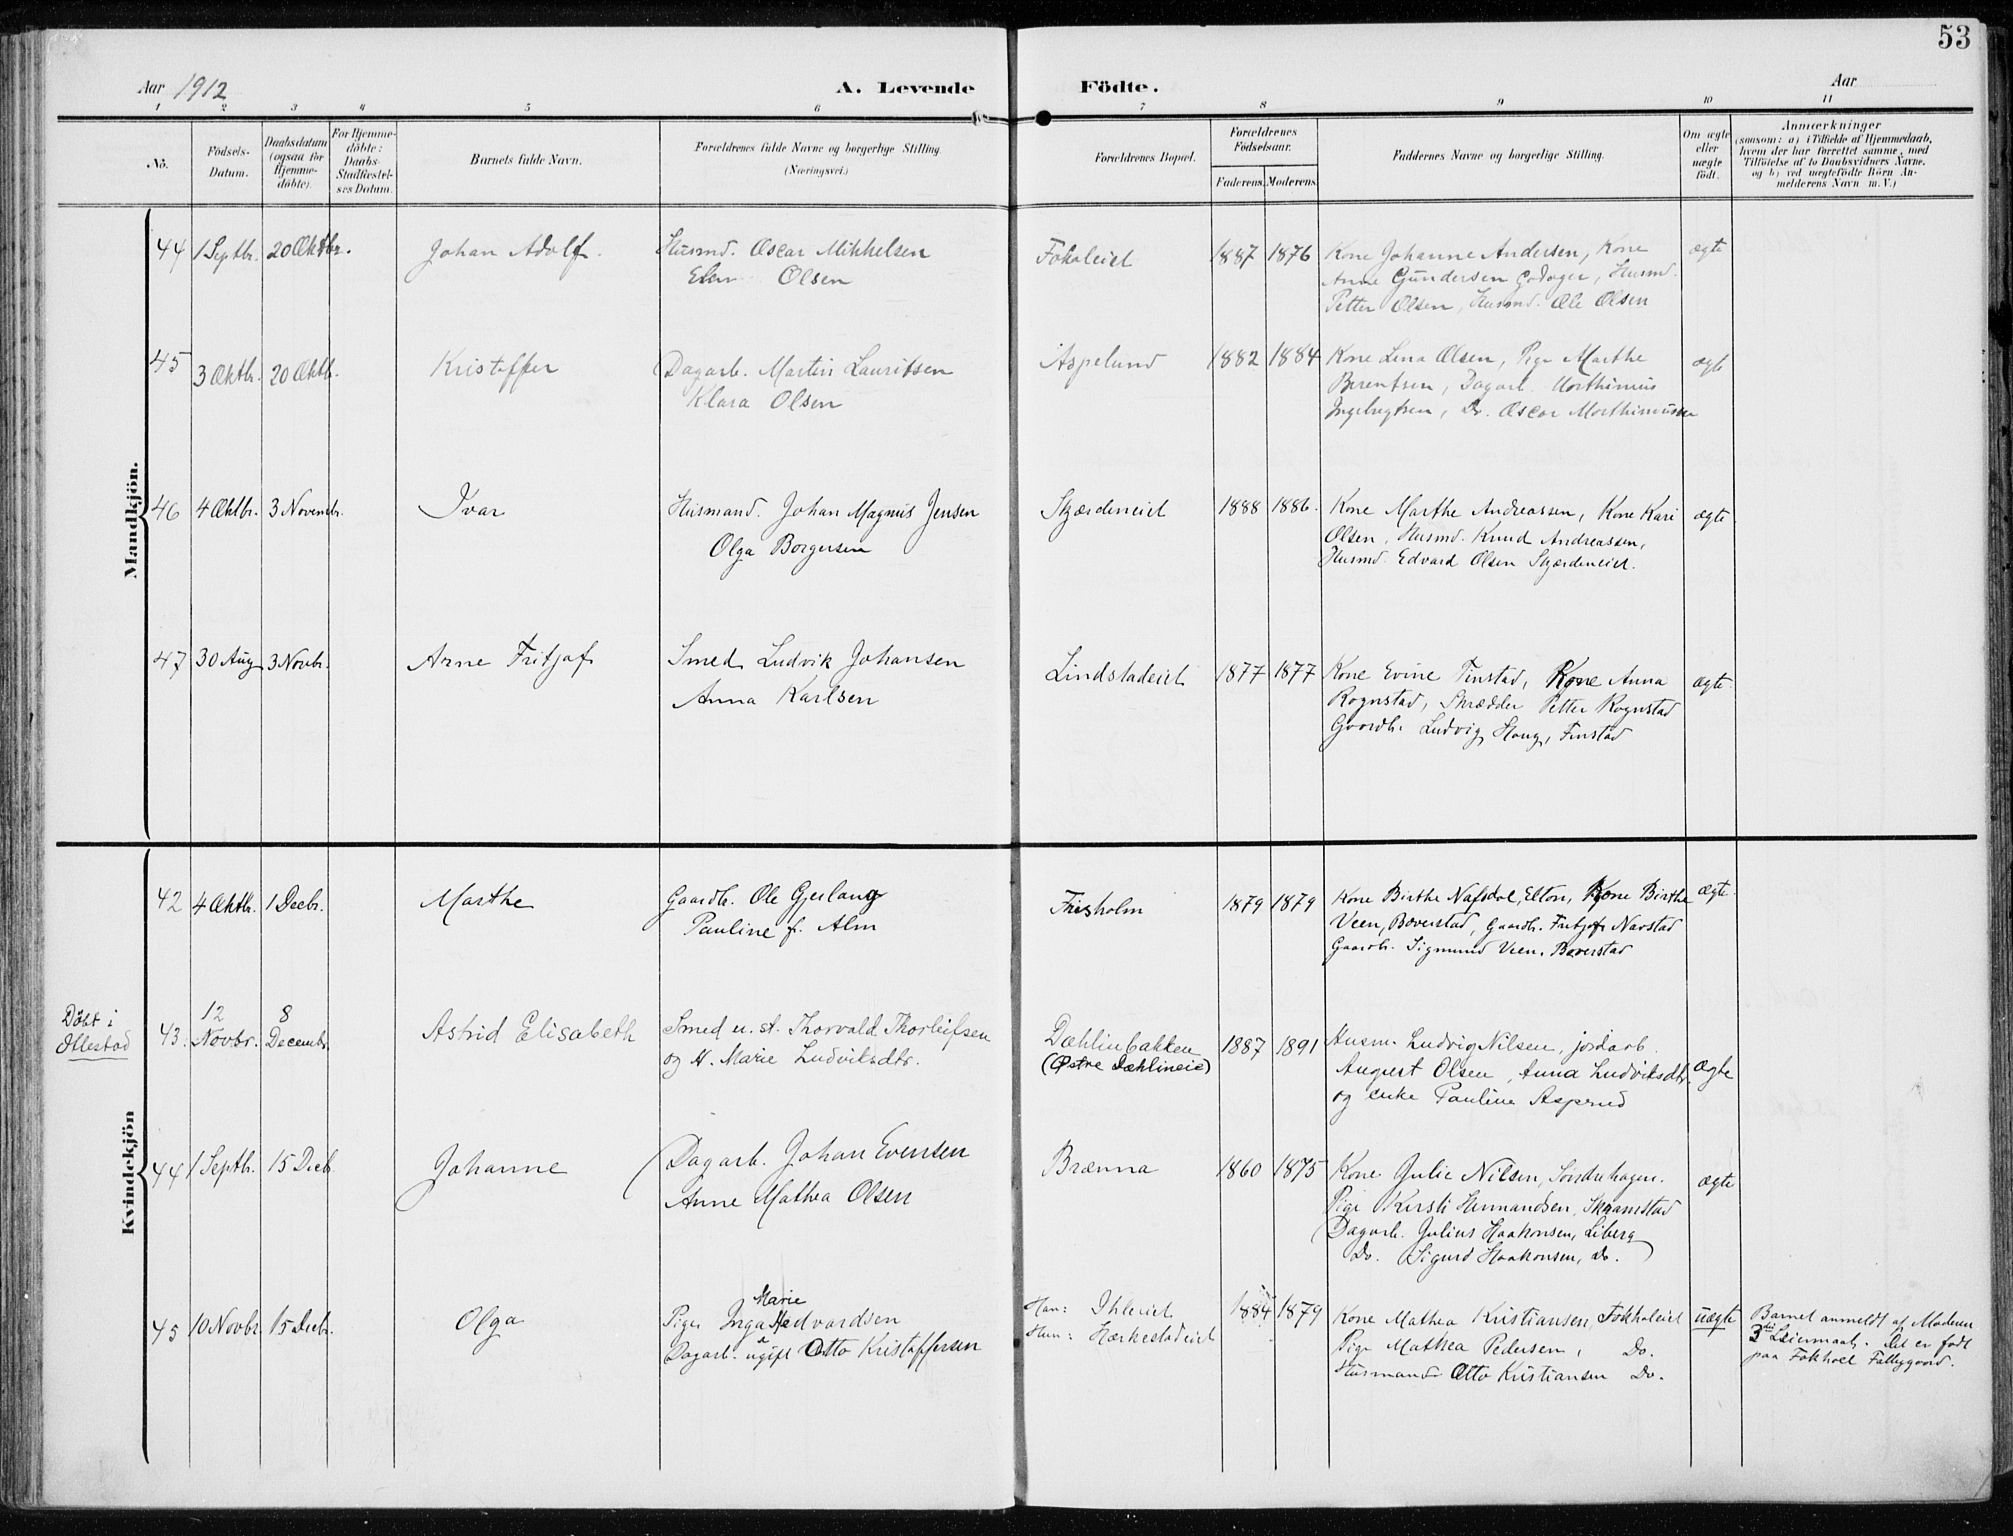 53
Aar 1912
A. Levende Födte.
Aar
1 2 3 4 5 6 7 8 9 10 11
No.
Födsels-
Datum.
Daabsdatum
(ogsaa for
Hjemme-
døbte).
For Hjemme-
döbte:
Daabs-
Stadfæstel-
ses Datum.
Barnets fulde Navn.
Forældrenes fulde Navne og borgerlige Stilling.
(Næringsvei.)
Forældrenes Bopæl.
Forældrenes
Födselsaar.
Faderens. Moderens.
Faddernes Navne og borgerlige Stilling.
Om ægte
eller
uægte
født.
Anmærkninger
(saasom: a) i Tilfælde af Hjemmedaab,
hvem der har forrettet samme, med
Tilföielse af to Daabsvidners Navne.
og b) ved uægtefödte Börn An-
melderens Navn m. V.)
Mandkjön.
44 1 Septbr. 20 Oktbr. Johan Adolf.
Husmd. Oscar Mikkelsen
Olsen
Fokoleiet
1887 1876
Kone Johanne Andersen, Kone
Anne Gundersen, Husmd.
Petter Olsen, Husmd. Ole Olsen
ægte
45 3 Oktbr. 20 Oktb. Kristoffer
Dagarb. Martin Lauritsen
Klara Olsen
Aspelund
1882 1884
Kone Lina Olsen, Pige Marthe
Berentsen, Dagarb. Morthinius
Ingebrigtsen, Do. Oscar Morthinusen
ægte
46 4 Oktbr. 3 Novembr. Ivar
Husmand. Johan Magnus Jensen
Olga Borgersen
Skjærdeneiet
1888 1886.
Kone Marthe Andreassen, Kone Kari
Olsen, Husmd. Knud Andreassen,
Husmd. Edvard Olsen Skjærdeneiet.
ægte
47 30 Aug 3 Novbr. Arne Fritjof
Smed Ludvik Johansen
Anna Karlsen
Lindstadeiet
1877 1877
Kone Evine Finstad, Kone Anna
Rognstad, Skrædder Petter Rognstad
Gaardb. Ludvig Haug, Finstad
ægte.
Kvindekjön
42 4 Oktbr. 1 Decbr. Marthe
Gaardb. Ole Gjerlaug
Pauline f. Alm
Frisholm
1879 1879
Kone Birthe Nafsdal, Elton, Kone Birthe
Veen, Bæverstad, Gaardb. Fritjof Narstad
Gaardb. Sigmund Veen, Bæverstad
ægte.
Döbt i
Ottestad
43. 12 Novbr. 8 Decembr. Astrid Elisabeth
Smed u. st. Thorvald Thorleifsen
og H. Marie Ludviksdtr.
Dæhlinbakken
(Østre Dæhlineie)
1887 1891
Husm. Ludvig Nilsen, jordarb.
August Olsen, Anna Ludviksdtr.
og enke Pauline Asperud
ægte
44 1 Septbr. 15 Decb. Johanne
Dagarb. Johan Evensen
Anne Mathea Olsen
Brænna
1860 1875
Kone Julie Nilsen, Søndrehagen.
Pige Kirsti Hermandsen, Skramstad
Dagarb. Julius Haakonsen, Liberg
Do. Sigurd Haakonsen, Do.
ægte
45 10 Novbr. 15 Decbr. Olga
Marie
Pige Inga Hedvardsen
Dagarb. ugift Otto Kristoffersen
Han: Ihleiet
Hun: Hærkestadeiet
1884 1879
Kone Mathea Kristiansen, Fokholeiet
Pige Mathea Pedersen, Do.
Husmand Otto Kristiansen Do.
uægte
Barnet anmeldt af Moderen
3die Leiermaal. Det er født
paa Fokhoel Fattiggaard.